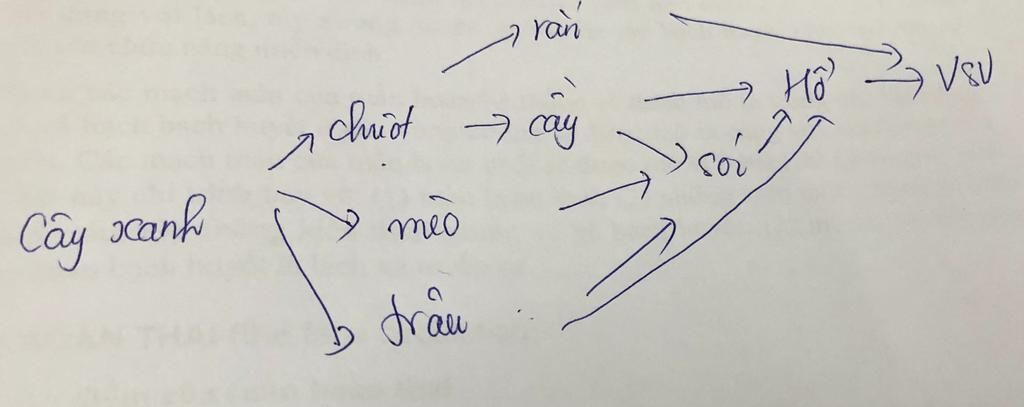 rắn
chuột
cầy
Hổ
VSV
sói
Cây xanh
mèo
trâu